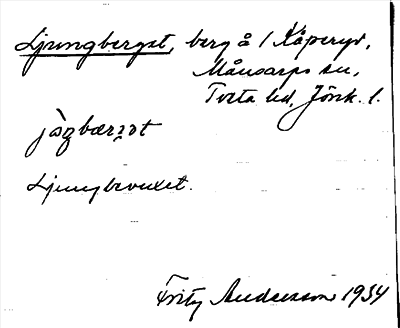 Ljungberget, berg å 1 Kåperyd,
Månsarps sn,
Tveta hd, Jönk. l.
Ljungbevuxet.
Fritz Andersson 1934